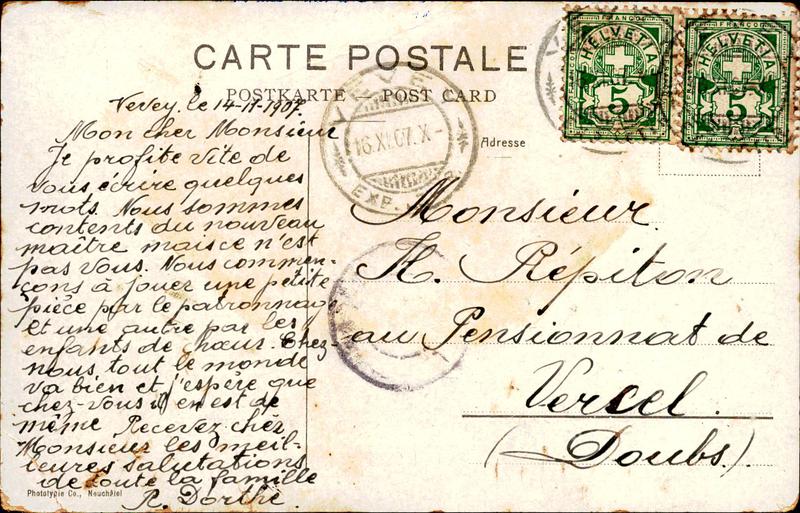 CARTE POSTALE
POSTKARTE POST CARD
FRANCO
HELVETIA
5
FRANCO
HELVETIA
5
VEVEY
16.XI.07.X-
EXP.
Adresse
Vevey, le 14-11-1907.
Mon cher Monsieur
Je profite vite de
vous écrire quelques
mots. Nous sommes
contents du nouveau
maître mais ce n'est
pas vous. Nous commen-
çons à jouer une petite
pièce par le patronnage
et une autre par les
enfants de chœur. Chez-
nous, tout le monde
va bien et j'espère que
chez-vous il en est de
même Recevez cher
Monsieur les meil-
leures salutations
de toute la famille
R. Dorthe.
Monsieur
H. Répiton
au Pensionnat de
Vercel.
(Doubs).
Photolypie Co., Neuchâtel